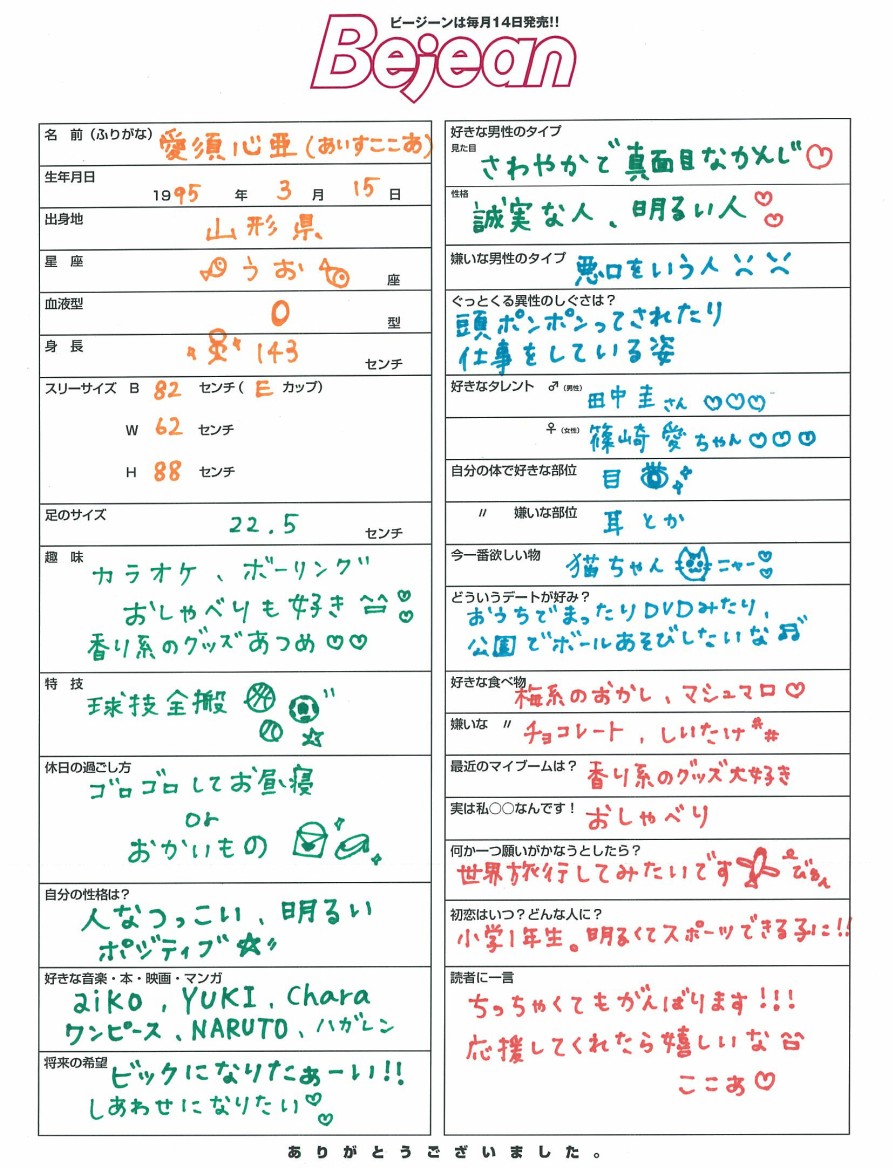 ビージーンは毎月14日発売!!
Bejean
名 前(ふりがな) 愛須心亜(あいすここあ)
生年月日
1995 年 3 月 15 日
出身地
山形県
星 座 うお 座
血液型 O 型
身 長 143 センチ
スリーサイズ B 82 センチ( E カップ)
W 62 センチ
H 88 センチ
足のサイズ 22.5 センチ
趣 味
カラオケ、ボーリング
おしゃべりも好き
香り系のグッズあつめ♡♡
特 技
球技全搬
休日の過ごし方
ゴロゴロしてお昼寝
or
おかいもの
自分の性格は?
人なつっこい、明るい
ポジティブ☆
好きな音楽・本・映画・マンガ
aiko, YUKI, Chara
ワンピース、NARUTO、ハガレン
将来の希望 ビックになりたぁーい!!
しあわせになりたい♡♡
好きな男性のタイプ
見た目 さわやかで真面目なかんじ♡
性格 誠実な人、明るい人♡♡
嫌いな男性のタイプ 悪口をいう人
ぐっとくる異性のしぐさは?
頭ポンポンってされたり
仕事をしている姿
好きなタレント ♂(男性) 田中圭さん ♡♡♡
♀(女性) 篠崎愛ちゃん♡♡♡
自分の体で好きな部位 目
〃 嫌いな部位 耳とか
今一番欲しい物 猫ちゃん ニャー♡♡
どういうデートが好み?
おうちでまったりDVDみたり、
公園でボールあそびしたいな♫
好きな食べ物 梅系のおかし、マシュマロ♡
嫌いな 〃 チョコレート、しいたけ
最近のマイブームは? 香り系のグッズ大好き
実は私○○なんです! おしゃべり
何か一つ願いがかなうとしたら?
世界旅行してみたいです びゅん
初恋はいつ?どんな人に?
小学1年生。明るくてスポーツできる子に!!
読者に一言
ちっちゃくてもがんばります!!!
応援してくれたら嬉しいな
ここあ♡
ありがとうございました。